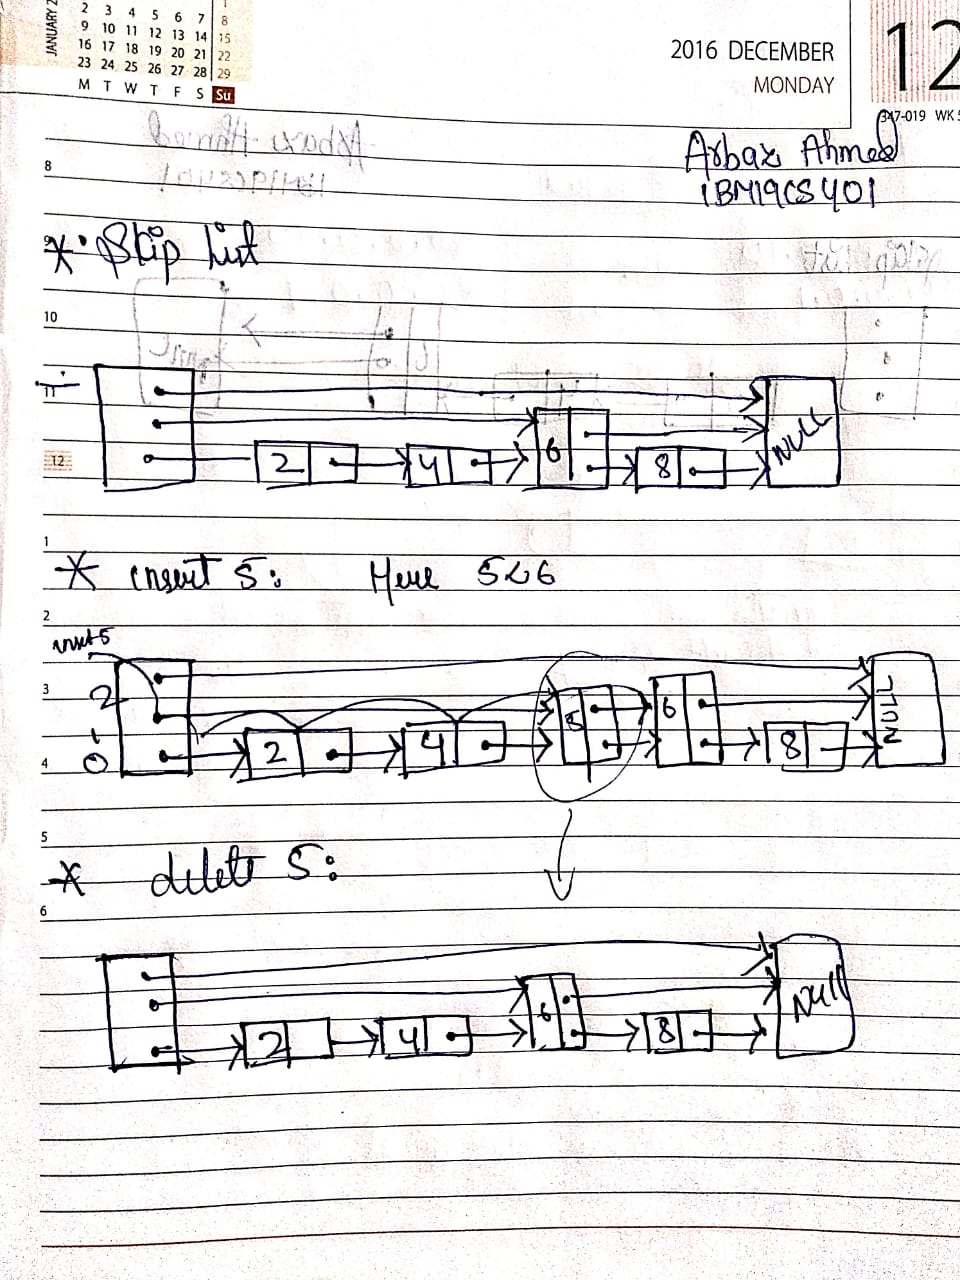 JANUARY 2
2 3 4 5 6 7 8
9 10 11 12 13 14 15
16 17 18 19 20 21 22
23 24 25 26 27 28 29
M T W T F S Su
2016 DECEMBER
MONDAY
12
347-019 WK
Arbaz Ahmed
1BM19CS401
8
9
* Skip List
10
11
12
2 4 6 8 NULL
1
* insert 5: Here 5<6
2
insert 5
3
2
1
0
2 4 5 6 8 NULL
4
5
* delete 5:
6
2 4 6 8 Null